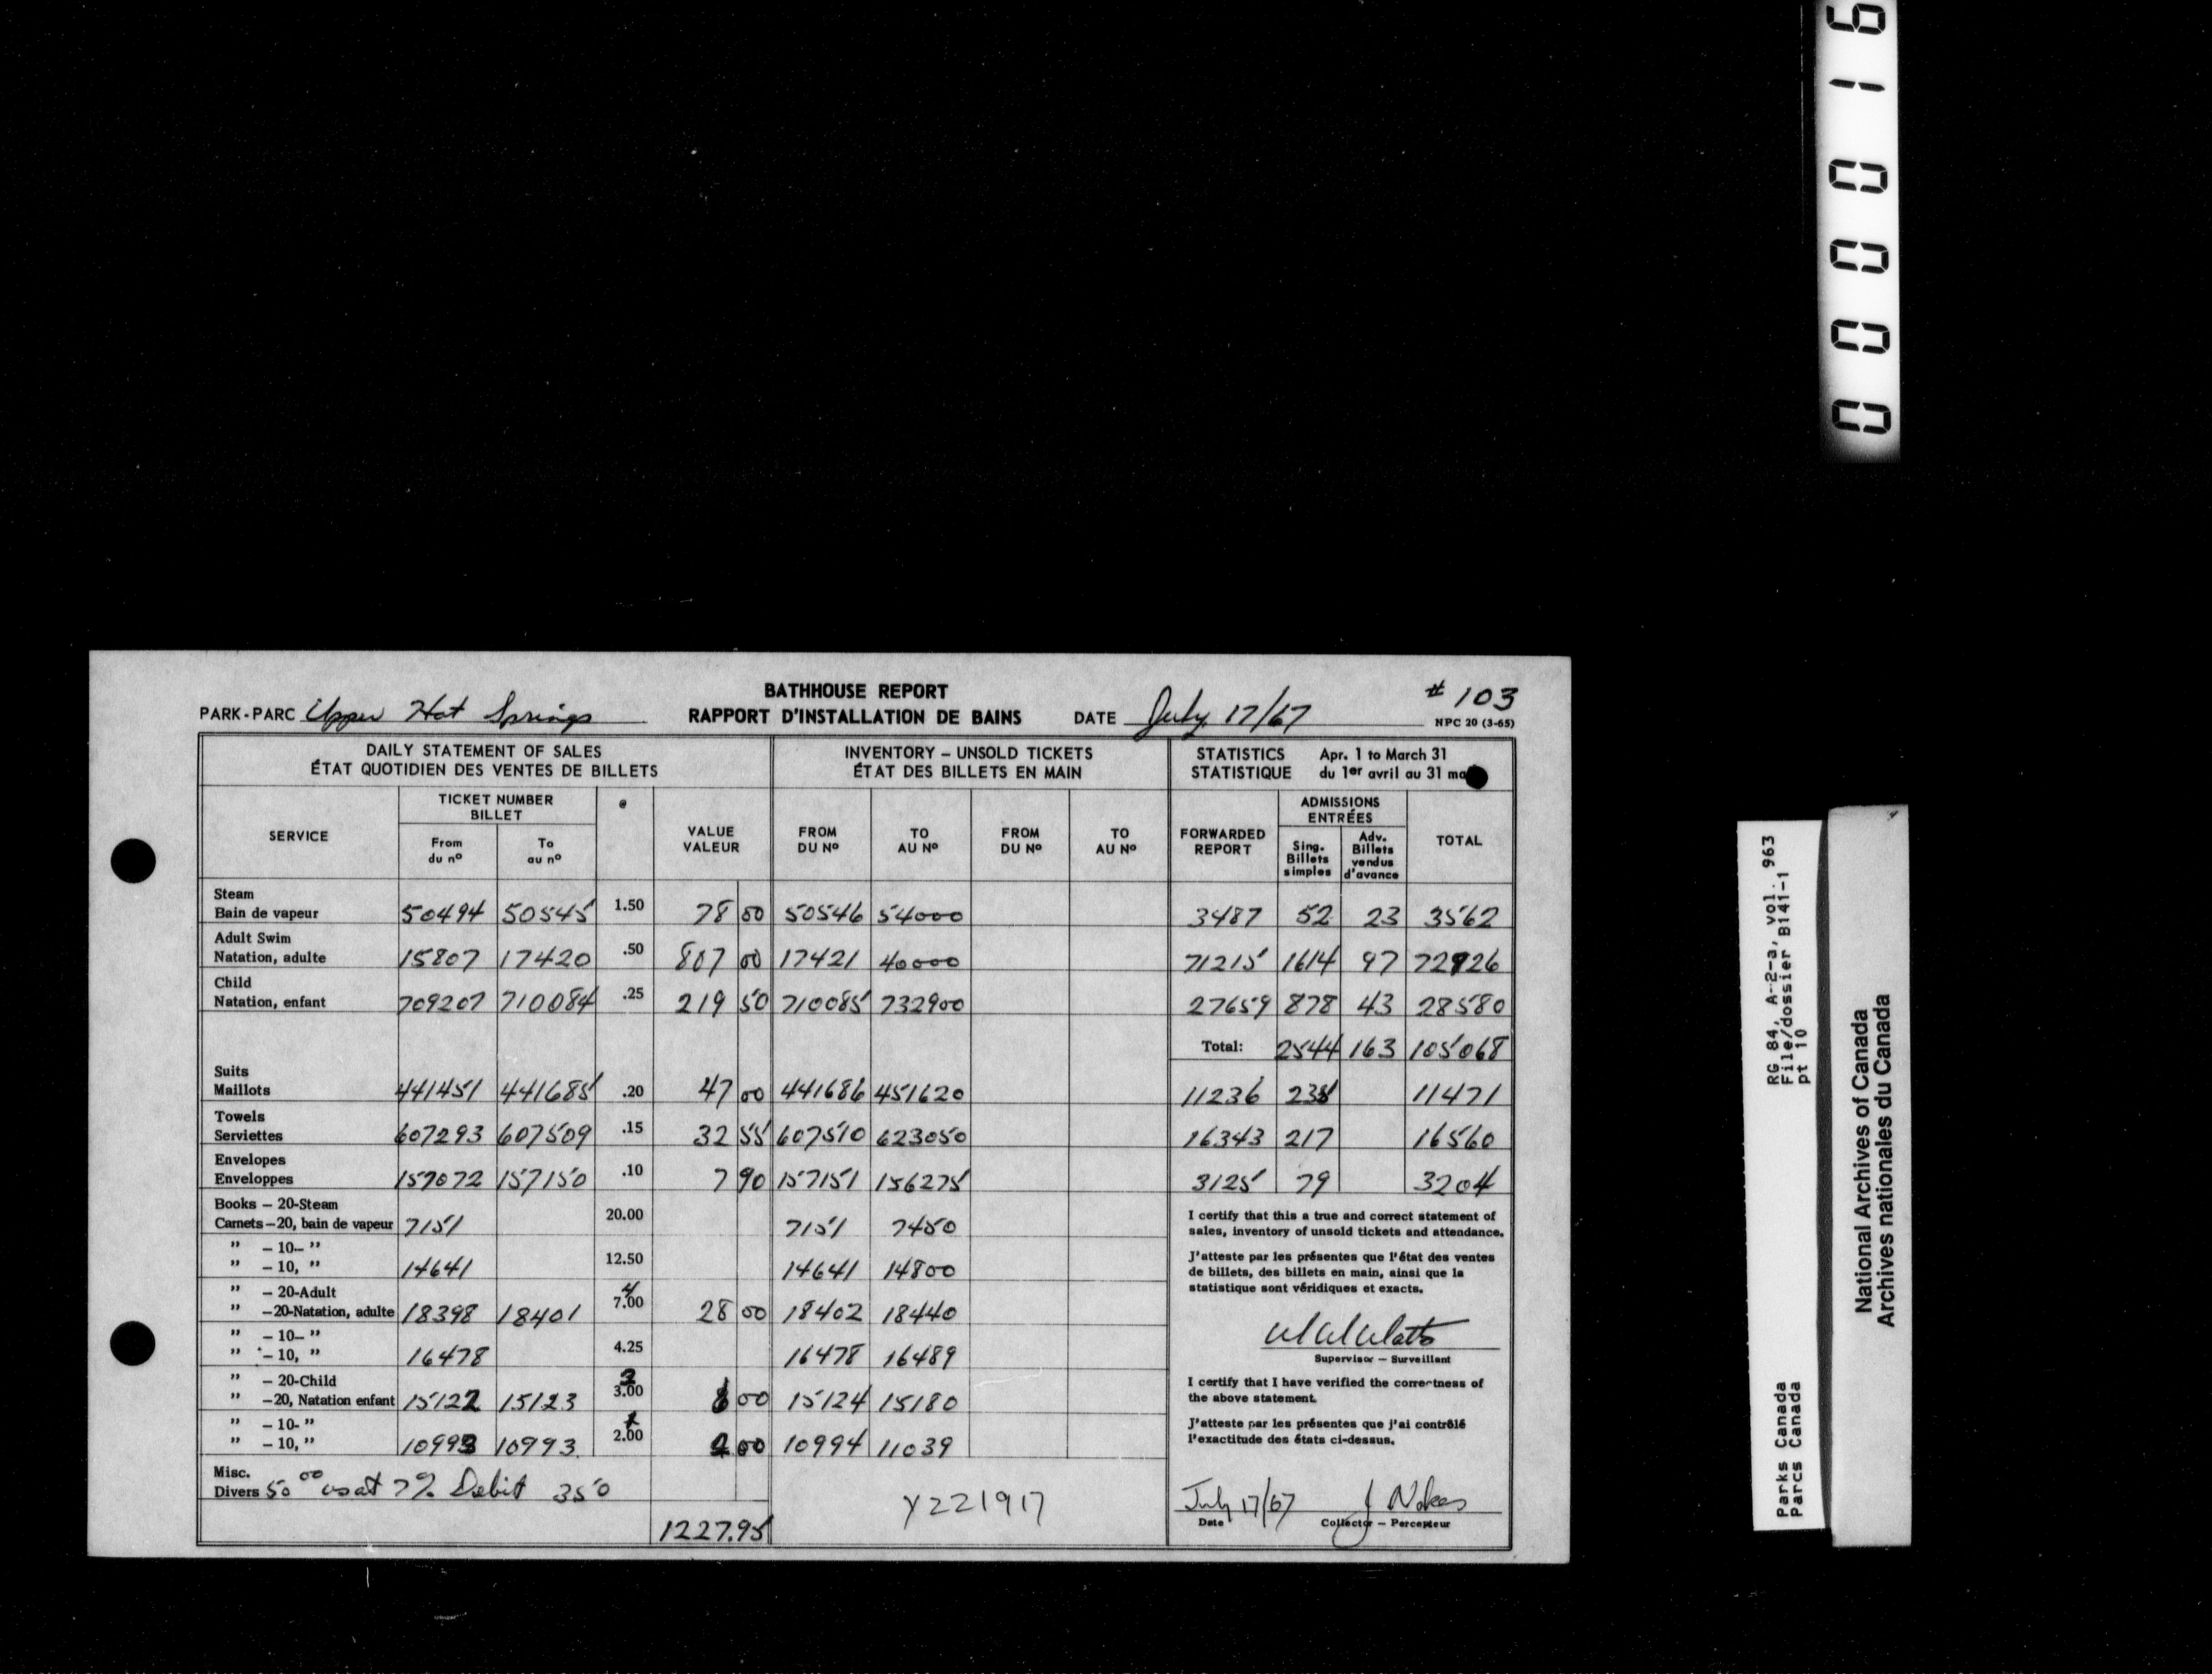 000016
BATHHOUSE REPORT
# 103
PARK-PARC Upper Hot Springs RAPPORT D'INSTALLATION DE BAINS DATE July 17/67 NPC 20 (3-65)
DAILY STATEMENT OF SALES INVENTORY – UNSOLD TICKETS STATISTICS Apr. 1 to March 31
ÉTAT QUOTIDIEN DES VENTES DE BILLETS ÉTAT DES BILLETS EN MAIN STATISTIQUE du 1er avril au 31
TICKET NUMBER @ ADMISSIONS
BILLET ENTRÉES
SERVICE VALUE FROM TO FROM TO FORWARDED TOTAL
From To VALEUR DU Nº AU Nº DU Nº AU Nº REPORT Sing. Billets simples Adv. Billets vendus d'avance
du nº au nº
Steam
Bain de vapeur 50494 50545 1.50 78 00 50546 54000 3487 52 23 3562
Adult Swim
Natation, adulte 15807 17420 .50 807 00 17421 40000 71215 1614 97 72926
Child
Natation, enfant 709207 710084 .25 219 50 710085 732900 27659 878 43 28580
Total: 2544 163 105068
Suits
Maillots 441451 441685 .20 47 00 441686 451620 11236 235 11471
Towels
Serviettes 607293 607509 .15 32 55 607510 623050 16343 217 16560
Envelopes
Enveloppes 157072 157150 .10 7 90 157151 156275 3125 79 3204
Books – 20-Steam
Carnets – 20, bain de vapeur 7151 20.00 7151 7450
" – 10– "
" – 10, " 14641 12.50 14641 14800
" – 20-Adult 4
" –20-Natation, adulte 18398 18401 7.00 28 00 18402 18440
" – 10– "
" – 10, " 16478 4.25 16478 16489
" – 20-Child 2
" –20, Natation enfant 15122 15123 3.00 6 00 15124 15180
" – 10- " 1
" – 10, " 10993 10993 2.00 2 00 10994 11039
Misc.
Divers 50 00 us at 7% Debit 350
1227.95
Y221917
I certify that this a true and correct statement of
sales, inventory of unsold tickets and attendance.
J'atteste par les présentes que l'état des ventes
de billets, des billets en main, ainsi que la
statistique sont véridiques et exacts.
Supervisor – Surveillant
I certify that I have verified the correctness of
the above statement.
J'atteste par les présentes que j'ai contrôlé
l'exactitude des états ci-dessus.
July 17/67 J Nokes
Date Collector – Percepteur
RG 84, A-2-a, vol. 963
File/dossier B141-1
pt 10
Parks Canada
Parcs Canada
National Archives of Canada
Archives nationales du Canada